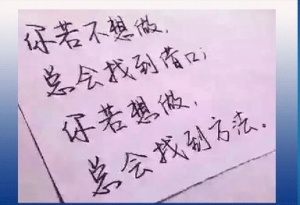 你若不想做，
总会找到借口；
你若想做，
总会找到方法.